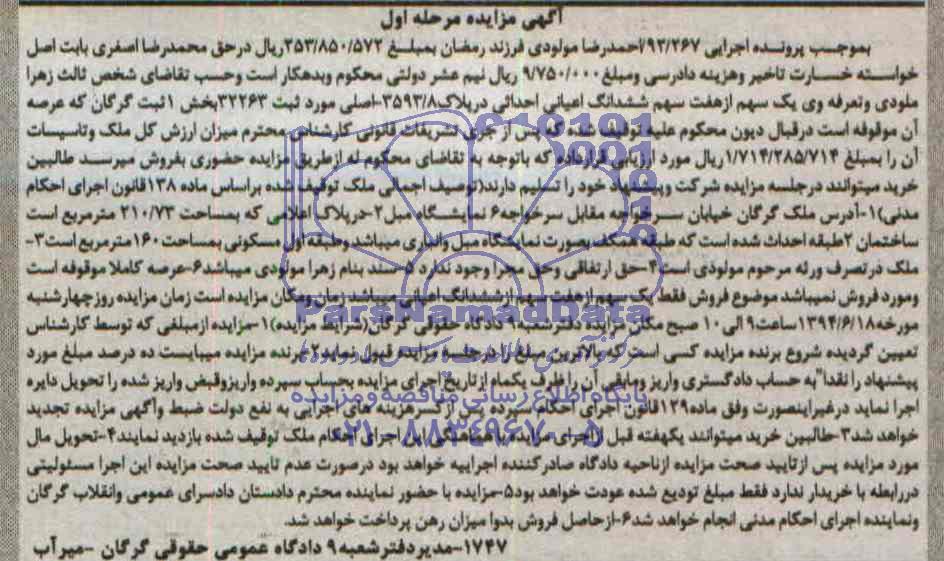 آگهی مزایده مرحله اول
بموجب پرونده اجرایی ۹۳/۲۶۷/احمدرضا مولودی فرزند رمضان بمبلغ ۲۵۳/۸۵۰/۵۷۲ریال درحق محمدرضا اصغری بابت اصل
خواسته خسارت تاخیر وهزینه دادرسی ومبلغ ۹/۷۵۰/۰۰۰ ریال نیم عشر دولتی محکوم وبدهکار است وحسب تقاضای شخص ثالث زهرا
ملودی وتعرفه وی یک سهم ازهفت سهم ششدانگ اعیانی احداثی درپلاک۳۵۹۳/۸-اصلی مورد ثبت ۲۲۲۶۳بخش ۱ثبت گرگان که عرصه
آن موقوفه است درقبال دیون محکوم علیه توقیف شده که پس از جری تشریفات قانونی کارشناس محترم میزان ارزش کل ملک وتاسیسات
آن را بمبلغ ۱/۷۱۴/۲۸۵/۷۱۴ریال مورد ارزیابی قرارداده که باتوجه به تقاضای محکوم له ازطریق مزایده حضوری بفروش میرسد طالبین
خرید میتوانند درجلسه مزایده شرکت وپیشنهاد خود را تسلیم دارند(توصیف اجمالی ملک توقیف شده براساس ماده ۱۳۸قانون اجرای احکام
مدنی)۱-آدرس ملک گرگان خیابان سرخواجه مقابل سرخواجه۶ نمایشگاه مبل۲-درپلاک اعلامی که بمساحت ۲۱۰/۷۳ مترمربع است
ساختمان ۲طبقه احداث شده است که طبقه همکف بصورت نمایشگاه مبل وانباری میباشد وطبقه اول مسکونی بمساحت ۱۶۰مترمربع است۳-
ملک درتصرف ورثه مرحوم مولودی است۴-حق ارتفاقی وحق مجرا وجود ندارد ۵-سند بنام زهرا مولودی میباشد۶-عرصه کاملا موقوفه است
ومورد فروش نمیباشد موضوع فروش فقط یک سهم ازهفت سهم ازششدانگ اعیانی میباشد زمان ومکان مزایده است زمان مزایده روزچهارشنبه
مورخه۱۳۹۴/۶/۱۸ساعت۹ الی۱۰ صبح مکان مزایده دفترشعبه۹ دادگاه حقوقی گرگان(شرایط مزایده)۱-مزایده ازمبلغی که توسط کارشناس
تعیین گردیده شروع برنده مزایده کسی است که بالاترین مبلغ را درجلسه مزایده قبول نماید۲-برنده مزایده میبایست ده درصد مبلغ مورد
پیشنهاد را نقدا"به حساب دادگستری واریز ومابقی آن را ظرف یکماه ازتاریخ اجرای مزایده بحساب سپرده واریزوقبض واریز شده را تحویل دایره
اجرا نماید درغیراینصورت وفق ماده۱۲۹قانون اجرای احکام سپرده پس ازکسرهزینه های اجرایی به نفع دولت ضبط وآگهی مزایده تجدید
خواهد شد۳-طالبین خرید میتوانند یکهفته قبل ازاجرای مزایده باهماهنگی این اجرای احکام ملک توقیف شده بازدید نمایند۴-تحویل مال
مورد مزایده پس ازتایید صحت مزایده ازناحیه دادگاه صادرکننده اجراییه خواهد بود درصورت عدم تایید صحت مزایده این اجرا مسئولیتی
دررابطه با خریدار ندارد فقط مبلغ تودیع شده عودت خواهد بود۵-مزایده با حضور نماینده محترم دادستان دادسرای عمومی وانقلاب گرگان
ونماینده اجرای احکام مدنی انجام خواهد شد۶-ازحاصل فروش بدوا میزان رهن پرداخت خواهد شد.
۱۷۴۷-مدیردفترشعبه۹ دادگاه عمومی حقوقی گرگان -میرآب
ParsNamadData
پایگاه اطلاع رسانی مناقصه و مزایده
۰۲۱-۸۸۳۴۹۶۷۰-۵